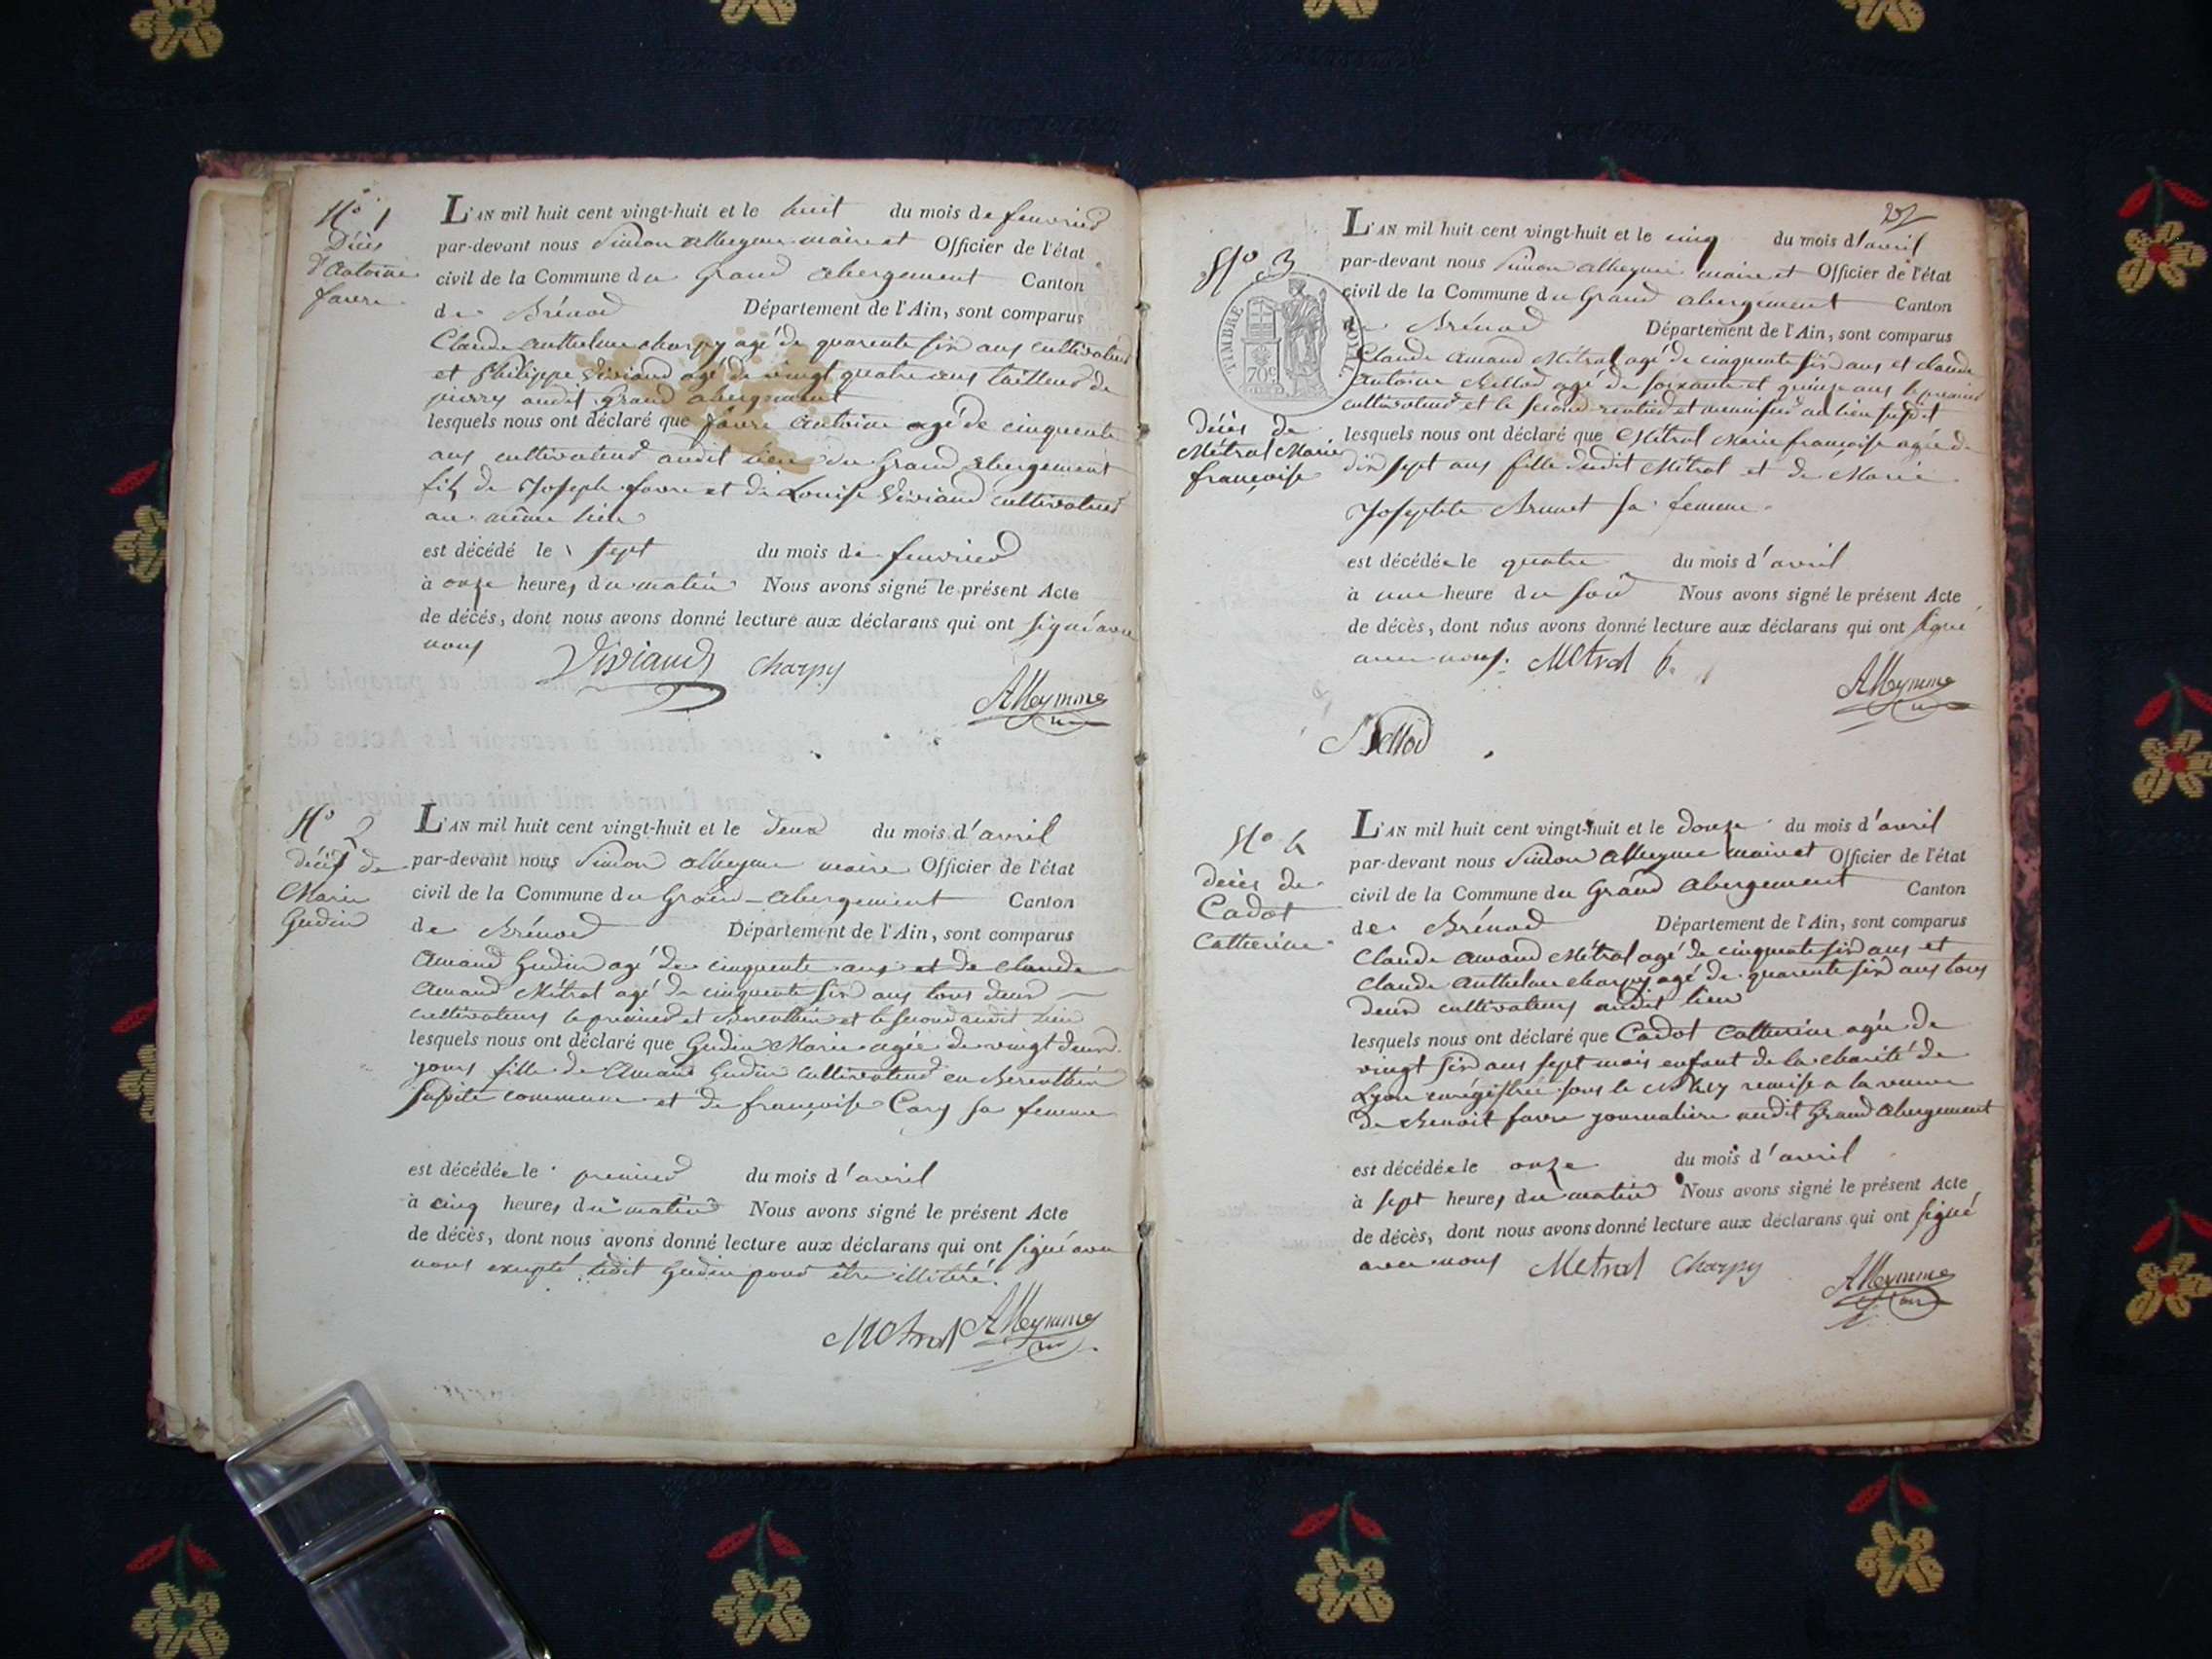 N° 1
Décès
d'Antoine
favre
L'AN mil huit cent vingt-huit et le huit du mois de fevrier
par-devant nous Simon Alleyme maire et Officier de l'état
civil de la Commune du Grand abergement Canton
de Brénod Département de l'Ain, sont comparus
Claude anthelme charpy agé de quarente six ans cultivateur
et Philippe Viviand agé de vingt quatre ans tailleur de
pierres audit grand abergement
lesquels nous ont déclaré que favre antoine agé de cinquente
ans cultivateur audit lieu du Grand abergement
fils de Joseph favre et de Louise Viviand cultivateurs
au même lieu
est décédé le sept du mois de fevrier
à onze heures du matin Nous avons signé le présent Acte
de décès, dont nous avons donné lecture aux déclarans qui ont signé avec
nous
Viviand charpy
Alleymme
N° 2
décès de
Marie
Gudin
L'AN mil huit cent vingt-huit et le deux du mois d'avril
par-devant nous Simon Alleyme maire Officier de l'état
civil de la Commune du Grand-abergement Canton
de Brénod Département de l'Ain, sont comparus
Amand Gudin agé de cinquente ans et de Claude
Amand Métral agé de cinquente six ans tous deux
cultivateurs le premier et et le second audit lieu
lesquels nous ont déclaré que Gudin Marie agée de vingt deux
jours fille de Amand Gudin cultivateur en
susdite commune et de françoise Cary sa femme
est décédée le premier du mois d'avril
à cinq heures du matin Nous avons signé le présent Acte
de décès, dont nous avons donné lecture aux déclarans qui ont signé avec
nous exepté ledit Gudin pour être illitéré
Metral Alleymme
N° 3
TIMBRE ROYAL
70c
décès de
Métral Marie
françoise
L'AN mil huit cent vingt-huit et le cinq du mois d'avril
par-devant nous Simon alleyme maire et Officier de l'état
civil de la Commune du Grand abergement Canton
de Brénod Département de l'Ain, sont comparus
Claude Amand Métral agé de cinquente six ans et claude
antoine Bellod agé de soixante et quinze ans le premier
cultivateur et le second rentier et menuisier au lieu susdit
lesquels nous ont déclaré que Métral Marie françoise agée de
dix sept ans fille dudit Métral et de Marie
Josephte Brunet sa femme
est décédée le quatre du mois d'avril
à une heure du soir Nous avons signé le présent Acte
de décès, dont nous avons donné lecture aux déclarans qui ont signé
avec nous. Metral
Alleymme
Bellod
N° 4
décès de
Cadot
Catherine
L'AN mil huit cent vingt-huit et le douze du mois d'avril
par-devant nous Simon Alleyme maire et Officier de l'état
civil de la Commune du Grand abergement Canton
de Brénod Département de l'Ain, sont comparus
Claude Amand Métral agé de cinquente six ans et
Claude Anthelme charpy agé de quarente six ans tous
deux cultivateurs audit lieu
lesquels nous ont déclaré que Cadot Catherine agée de
vingt six ans sept mois enfant de la charité de
Lyon enrégistrée sous le remise a la veuve
de Benoit favre journaliere audit Grand Abergement
est décédée le onze du mois d'avril
à sept heures du matin Nous avons signé le présent Acte
de décès, dont nous avons donné lecture aux déclarans qui ont signé
avec nous Metral Charpy
Alleymme